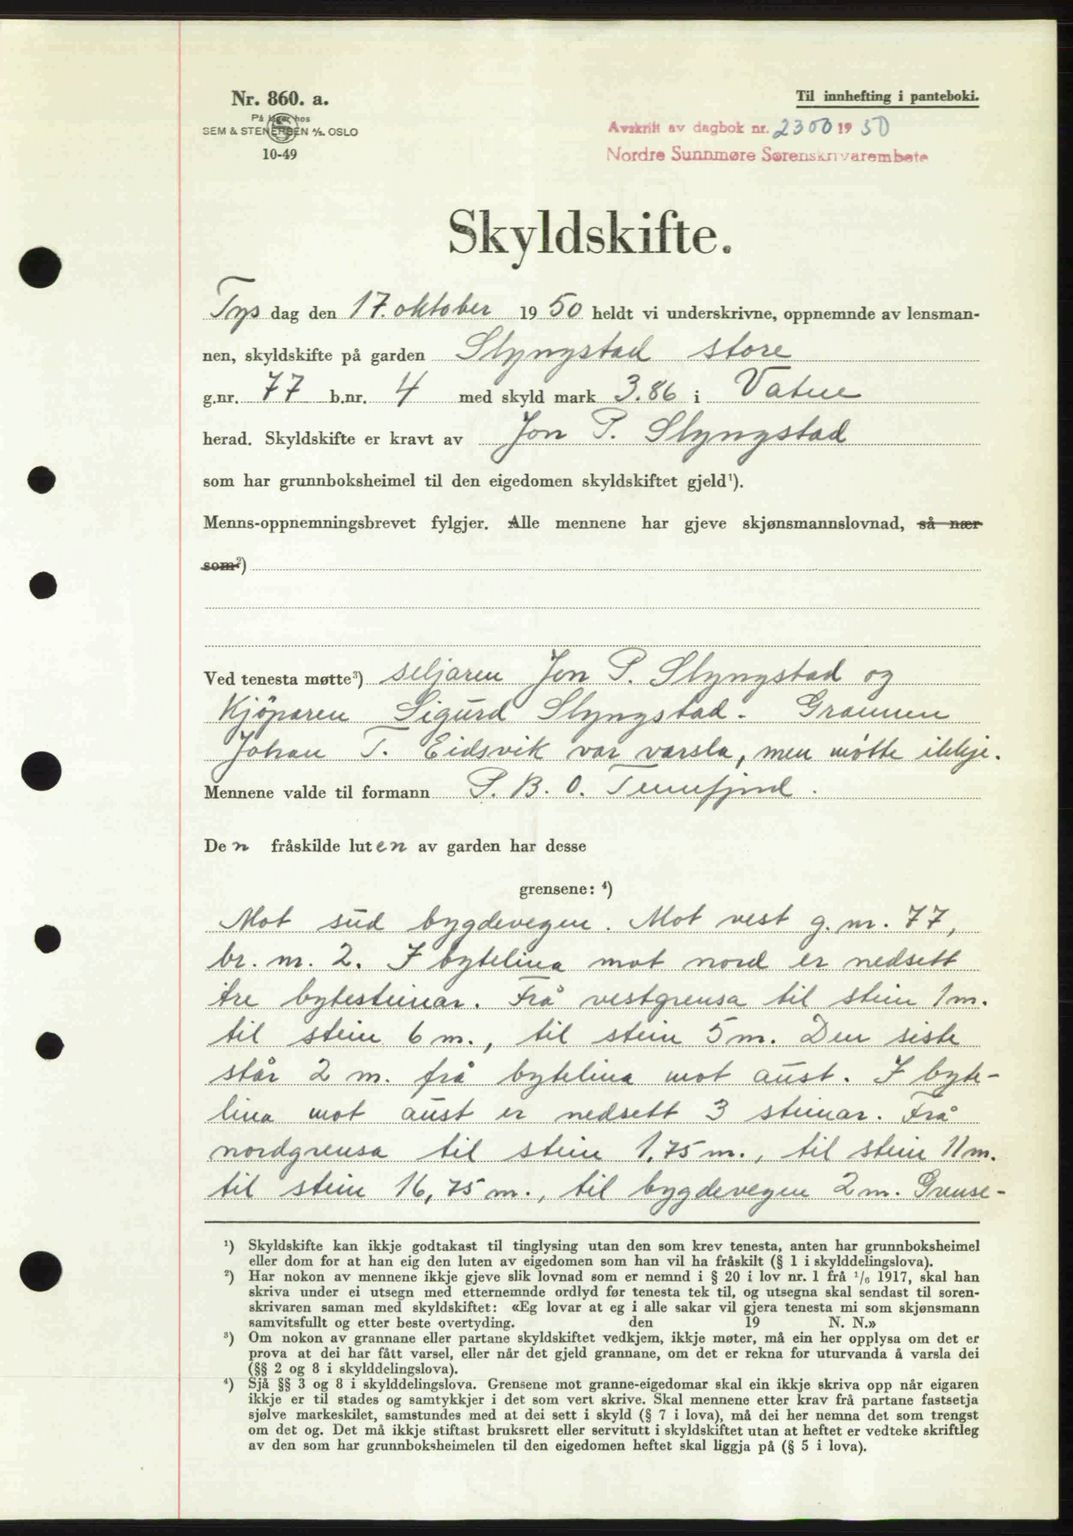 Nr. 860. a.
På lager hos
SEM & STENERSEN A/S. OSLO
10-49
Til innhefting i panteboki.
Avskrift av dagbok nr. 2300 19 50
Nordre Sunnmøre Sørenskrivarembete
Skyldskifte.
Tys dag den 17. oktober 19 50 heldt vi underskrivne, oppnemnde av lensman-
nen, skyldskifte på garden Slyngstad store
g.nr. 77 b.nr. 4 med skyld mark 3.86 i Vatne
herad. Skyldskifte er kravt av Jon P. Slyngstad
som har grunnboksheimel til den eigedomen skyldskiftet gjeld¹).
Menns-oppnemningsbrevet fylgjer. Alle mennene har gjeve skjønsmannslovnad, så nær
som²)
Ved tenesta møtte³) seljaren Jon P. Slyngstad og
Kjöparen Sigurd Slyngstad. Grannen
Johan T. Eidsvik var varsla, men møtte ikkje.
Mennene valde til formann P. B. O. Tennfjord.
Den fråskilde luten av garden har desse
grensene: ⁴)
Mot sud bygdevegen. Mot vest g. nr. 77,
br. nr. 2. I bytelina mot nord er nedsett
tre bytesteinar. Frå vestgrensa til stein 1 m.
til stein 6 m., til stein 5 m. Den siste
står 2 m. frå bytelina mot aust. I byte-
lina mot aust er nedsett 3 steinar. Frå
nordgrensa til stein 1,75 m., til stein 11 m.
til stein 16,75 m., til bygdevegen 2 m. Grense-
¹) Skyldskifte kan ikkje godtakast til tinglysing utan den som krev tenesta, anten har grunnboksheimel
eller dom for at han eig den luten av eigedomen som han vil ha fråskilt (§ 1 i skylddelingslova).
²) Har nokon av mennene ikkje gjeve slik lovnad som er nemnd i § 20 i lov nr. 1 frå ¹/₆ 1917, skal han
skriva under ei utsegn med etternemnde ordlyd før tenesta tek til, og utsegna skal sendast til soren-
skrivaren saman med skyldskiftet: «Eg lovar at eg i alle sakar vil gjera tenesta mi som skjønsmann
samvitsfullt og etter beste overtyding. den 19 N. N.»
³) Om nokon av grannane eller partane skyldskiftet vedkjem, ikkje møter, må ein her opplysa om det er
prova at dei har fått varsel, eller når det gjeld grannane, om det er rekna for uturvanda å varsla dei
(§§ 2 og 8 i skylddelingslova).
⁴) Sjå §§ 3 og 8 i skylddelingslova. Grensene mot granne-eigedomar skal ein ikkje skriva opp når eigaren
ikkje er til stades og samtykkjer i det som vert skrive. Skal mennene etter krav frå partane fastsetja
sjølve markeskilet, samstundes med at dei sett i skyld (§ 7 i lova), må dei her nemna det som trengst
om det og. Det må ikkje stiftast bruksrett eller servitutt i skyldskiftet utan at heftet er vedteke skriftleg
av den som har grunnboksheimelen til den eigedomen heftet skal liggja på (§ 5 i lova).